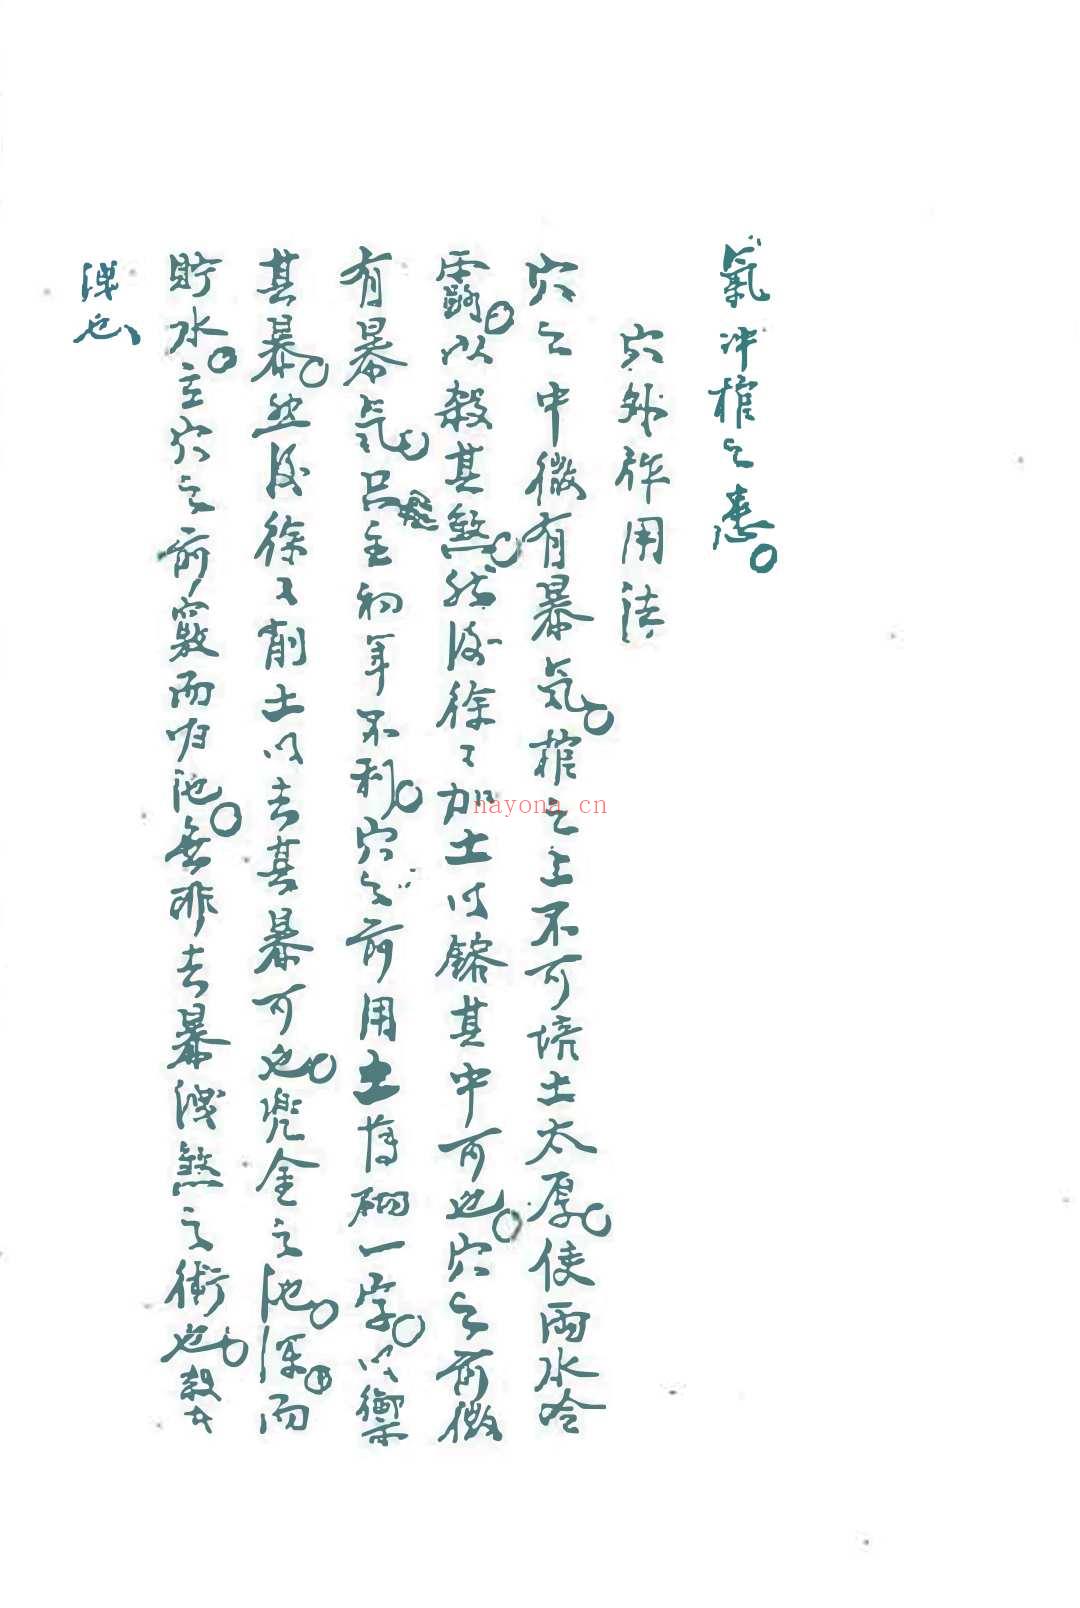 氣冲棺之患。
穴外作用法
穴之中微有暴気。棺之上不可培土太厚。使雨水冷
露。以殺其煞。然後徐々加土以鎔其中可也。穴之前微
有暴気。只主初年不利。穴之前用土磚砌一字。以禦
其暴。然後徐々削土以去其暴可也。兜金之池。深而
貯水。主穴之前竅而归池。無非去暴浅煞之術也。
浅也
nayona.cn